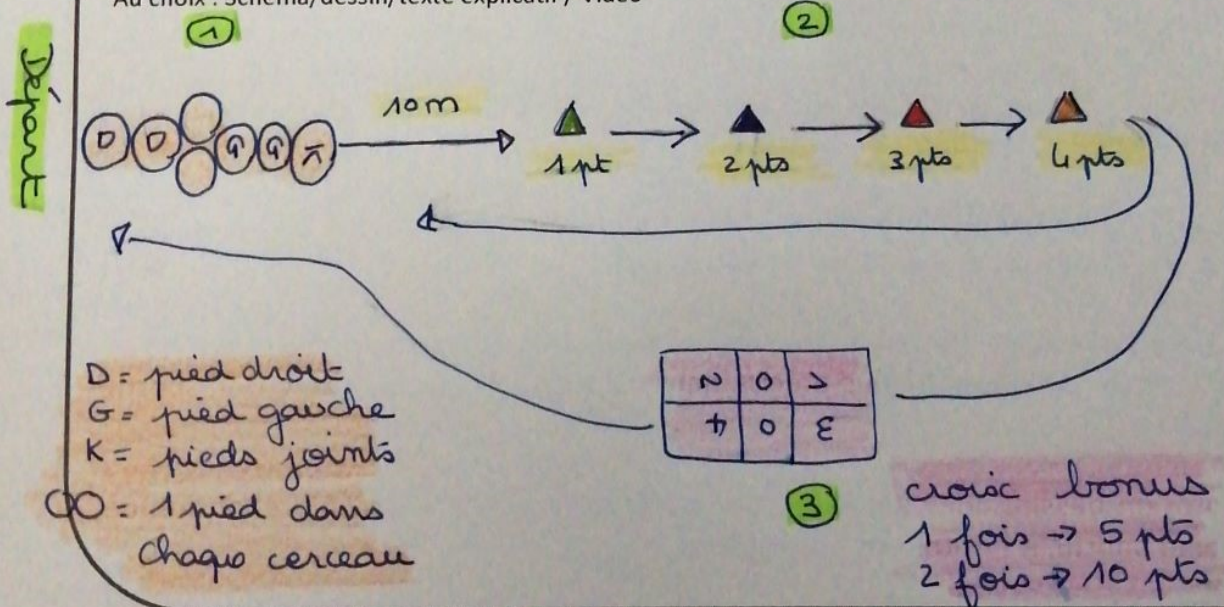 Au choix : schéma/dessin/texte explicatif / vidéo
1
2
Départ
D D G G K
10 m
1 pt
2 pts
3 pts
4 pts
D = pied droit
G = pied gauche
K = pieds joints
OO = 1 pied dans
chaque cerceau
2 0 1
4 0 3
3
croix bonus
1 fois → 5 pts
2 fois → 10 pts